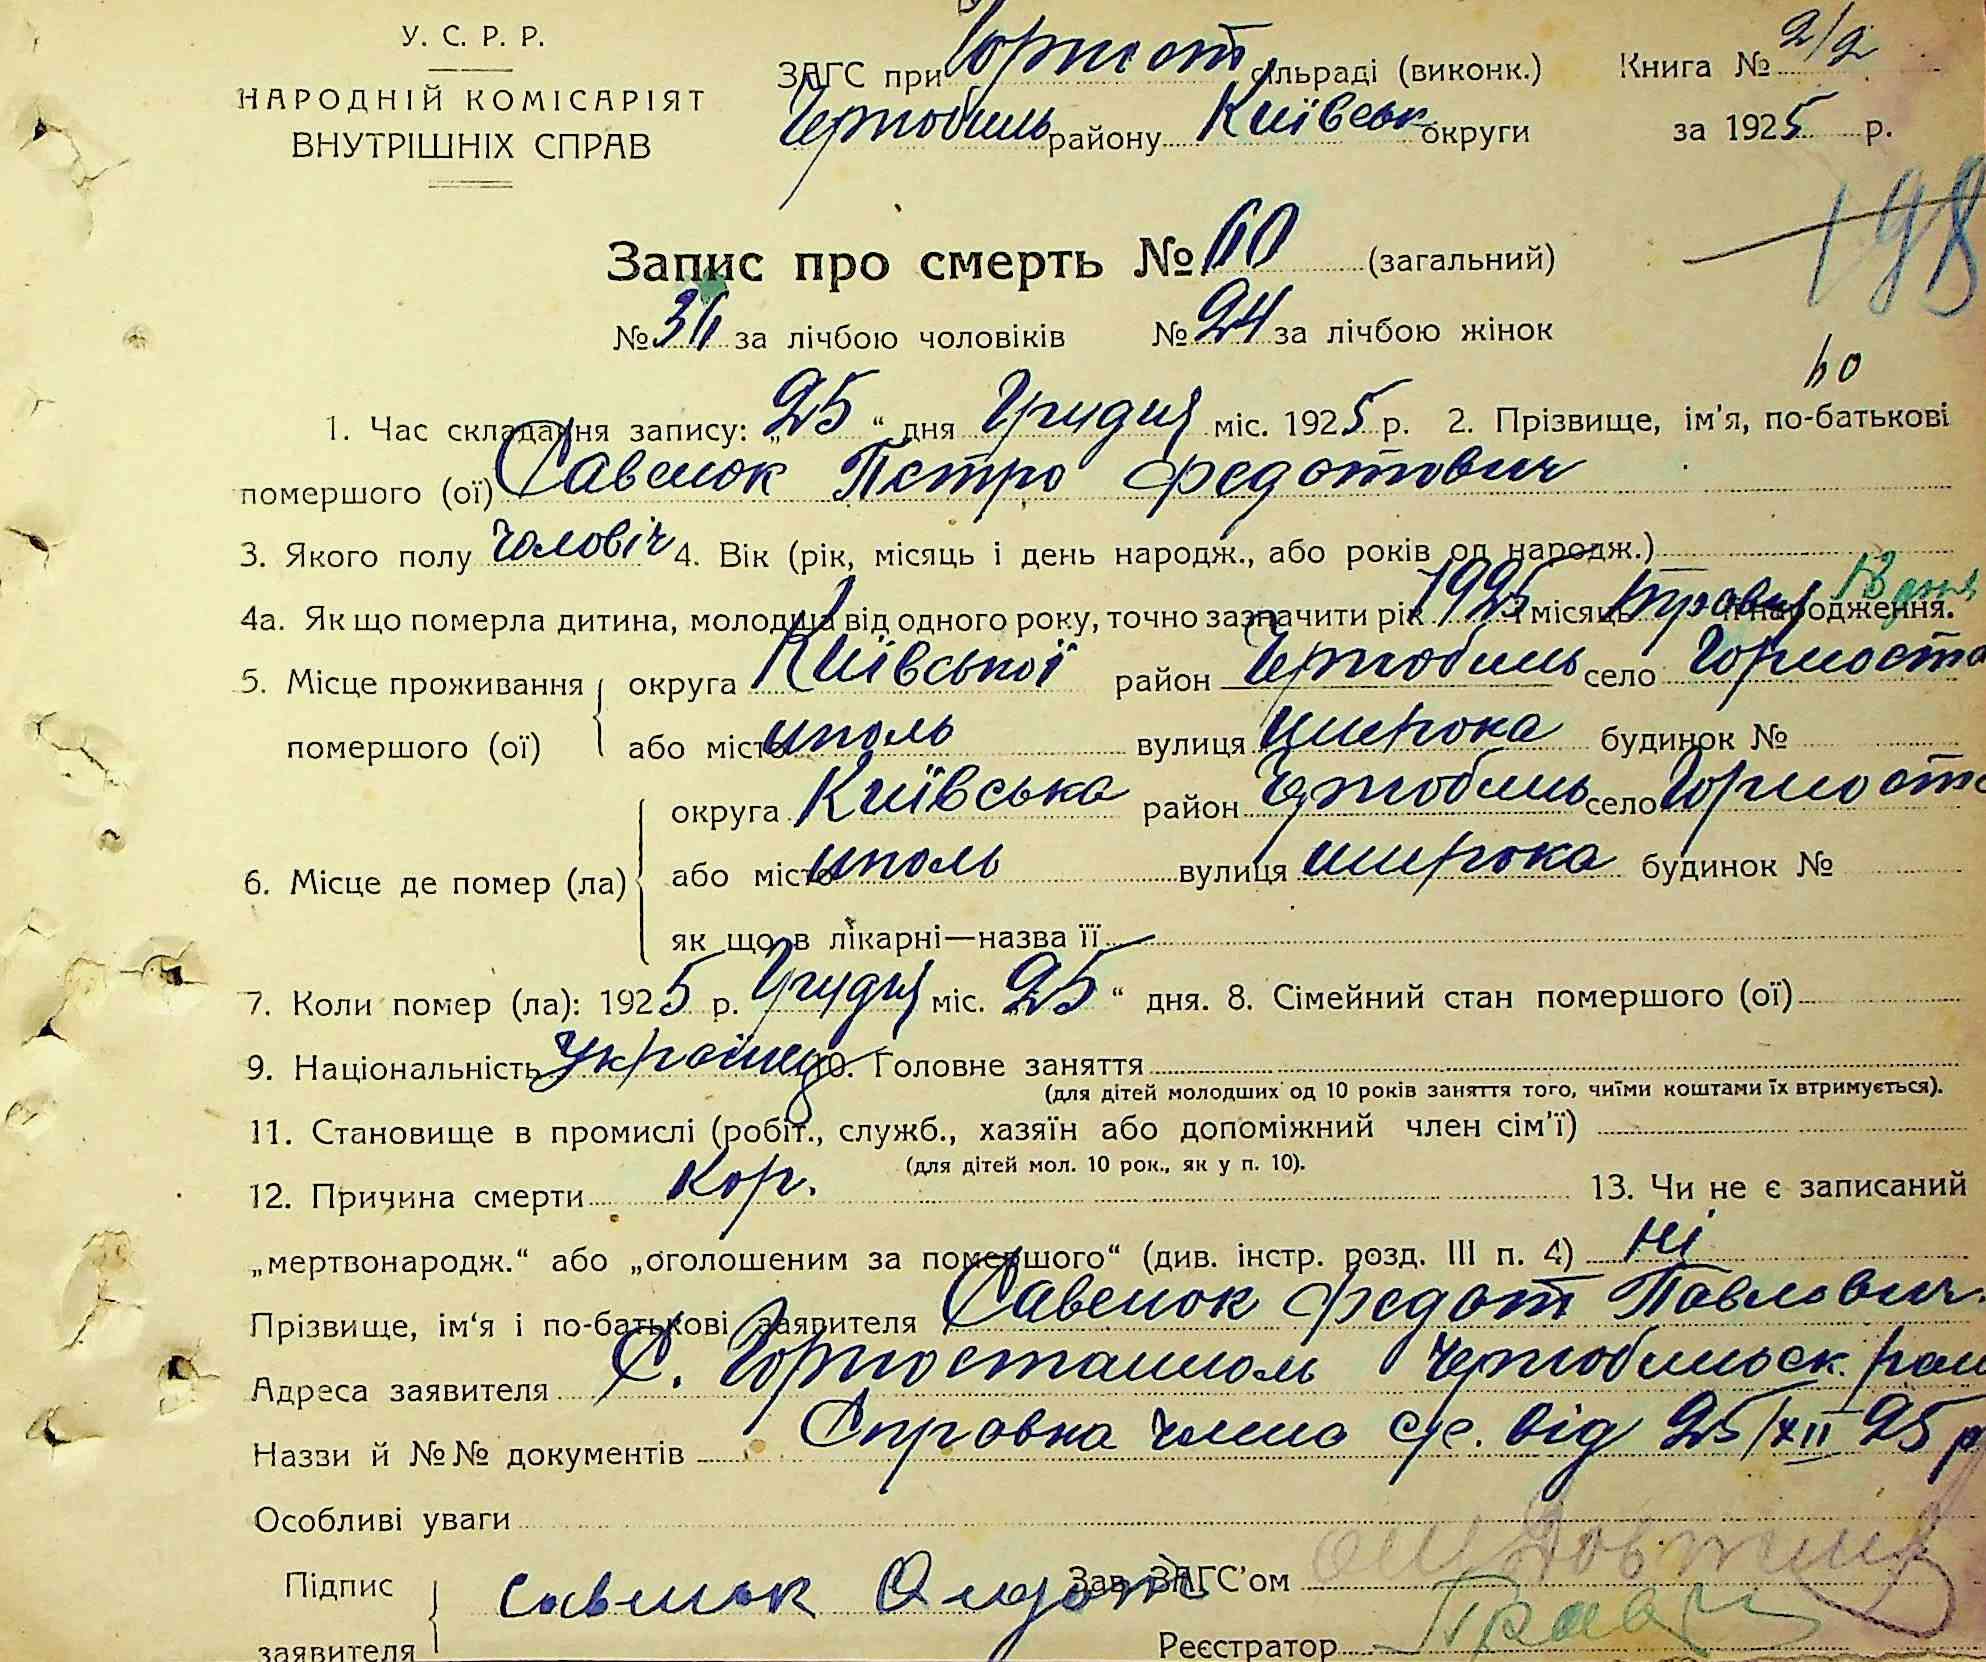 У. С. Р. Р.
НАРОДНІЙ КОМІСАРІЯТ
ВНУТРІШНІХ СПРАВ
ЗАГС при Горност сільраді (виконк.)
Чернобиль району Київськ округи
Книга № 2/2
за 1925 р.
198
Запис про смерть № 60 (загальний)
№ 36 за лічбою чоловіків № 24 за лічбою жінок
60
1. Час складання запису: „25“ дня Грудня міс. 1925 р. 2. Прізвище, ім'я, по-батькові
помершого (ої) Савенок Петро Федотович
3. Якого полу чоловіч 4. Вік (рік, місяць і день народж., або років од народж.)
4а. Як що померла дитина, молодша від одного року, точно зазначити рік 1925 і місяць травня 18 дня народження.
5. Місце проживання помершого (ої) округа Київської район Чернобиль село Горноста
або місто йполь вулиця широка будинок №
6. Місце де помер (ла) округа Київська район Чернобиль село Горноста
або місто йполь вулиця широка будинок №
як що в лікарні—назва її
7. Коли помер (ла): 1925 р. Грудня міс. „25“ дня. 8. Сімейний стан помершого (ої)
9. Національність Україец 10. Головне заняття
(для дітей молодших од 10 років заняття того, чиїми коштами їх втримується).
11. Становище в промислі (робіт., служб., хазяїн або допоміжний член сім'ї)
(для дітей мол. 10 рок., як у п. 10).
12. Причина смерти Кор. 13. Чи не є записаний
„мертвонародж.“ або „оголошеним за помершого“ (див. інстр. розд. III п. 4) Ні
Прізвище, ім'я і по-батькові заявителя Савенок Федот Павлович.
Адреса заявителя С. Горностайполь Чернобильск. рай
Назви й №№ документів Справка члена с/с. від 25/XII 25 р
Особливі уваги
Підпис заявителя Савенок
Зав. ЗАГС'ом
Реєстратор